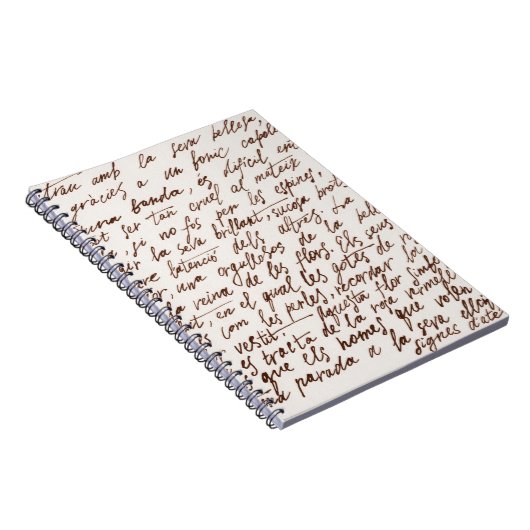 trau amb la seva bellesa,
gràcies a un fonic capoll
una banda, és difícil en
t ser tan cruel al mateix
, si no fs per les espines,
ir la seva brillant, sucosa brot
atenció dels altres. La
or, una orgullosa de la bell
reina de les flors. Els seus
, en el qual les gotes de
com les perles, recordar
vestit. Aquesta flor simb
es traita de la roie només
que els homes que volen
parada a la seva
signes d'ate